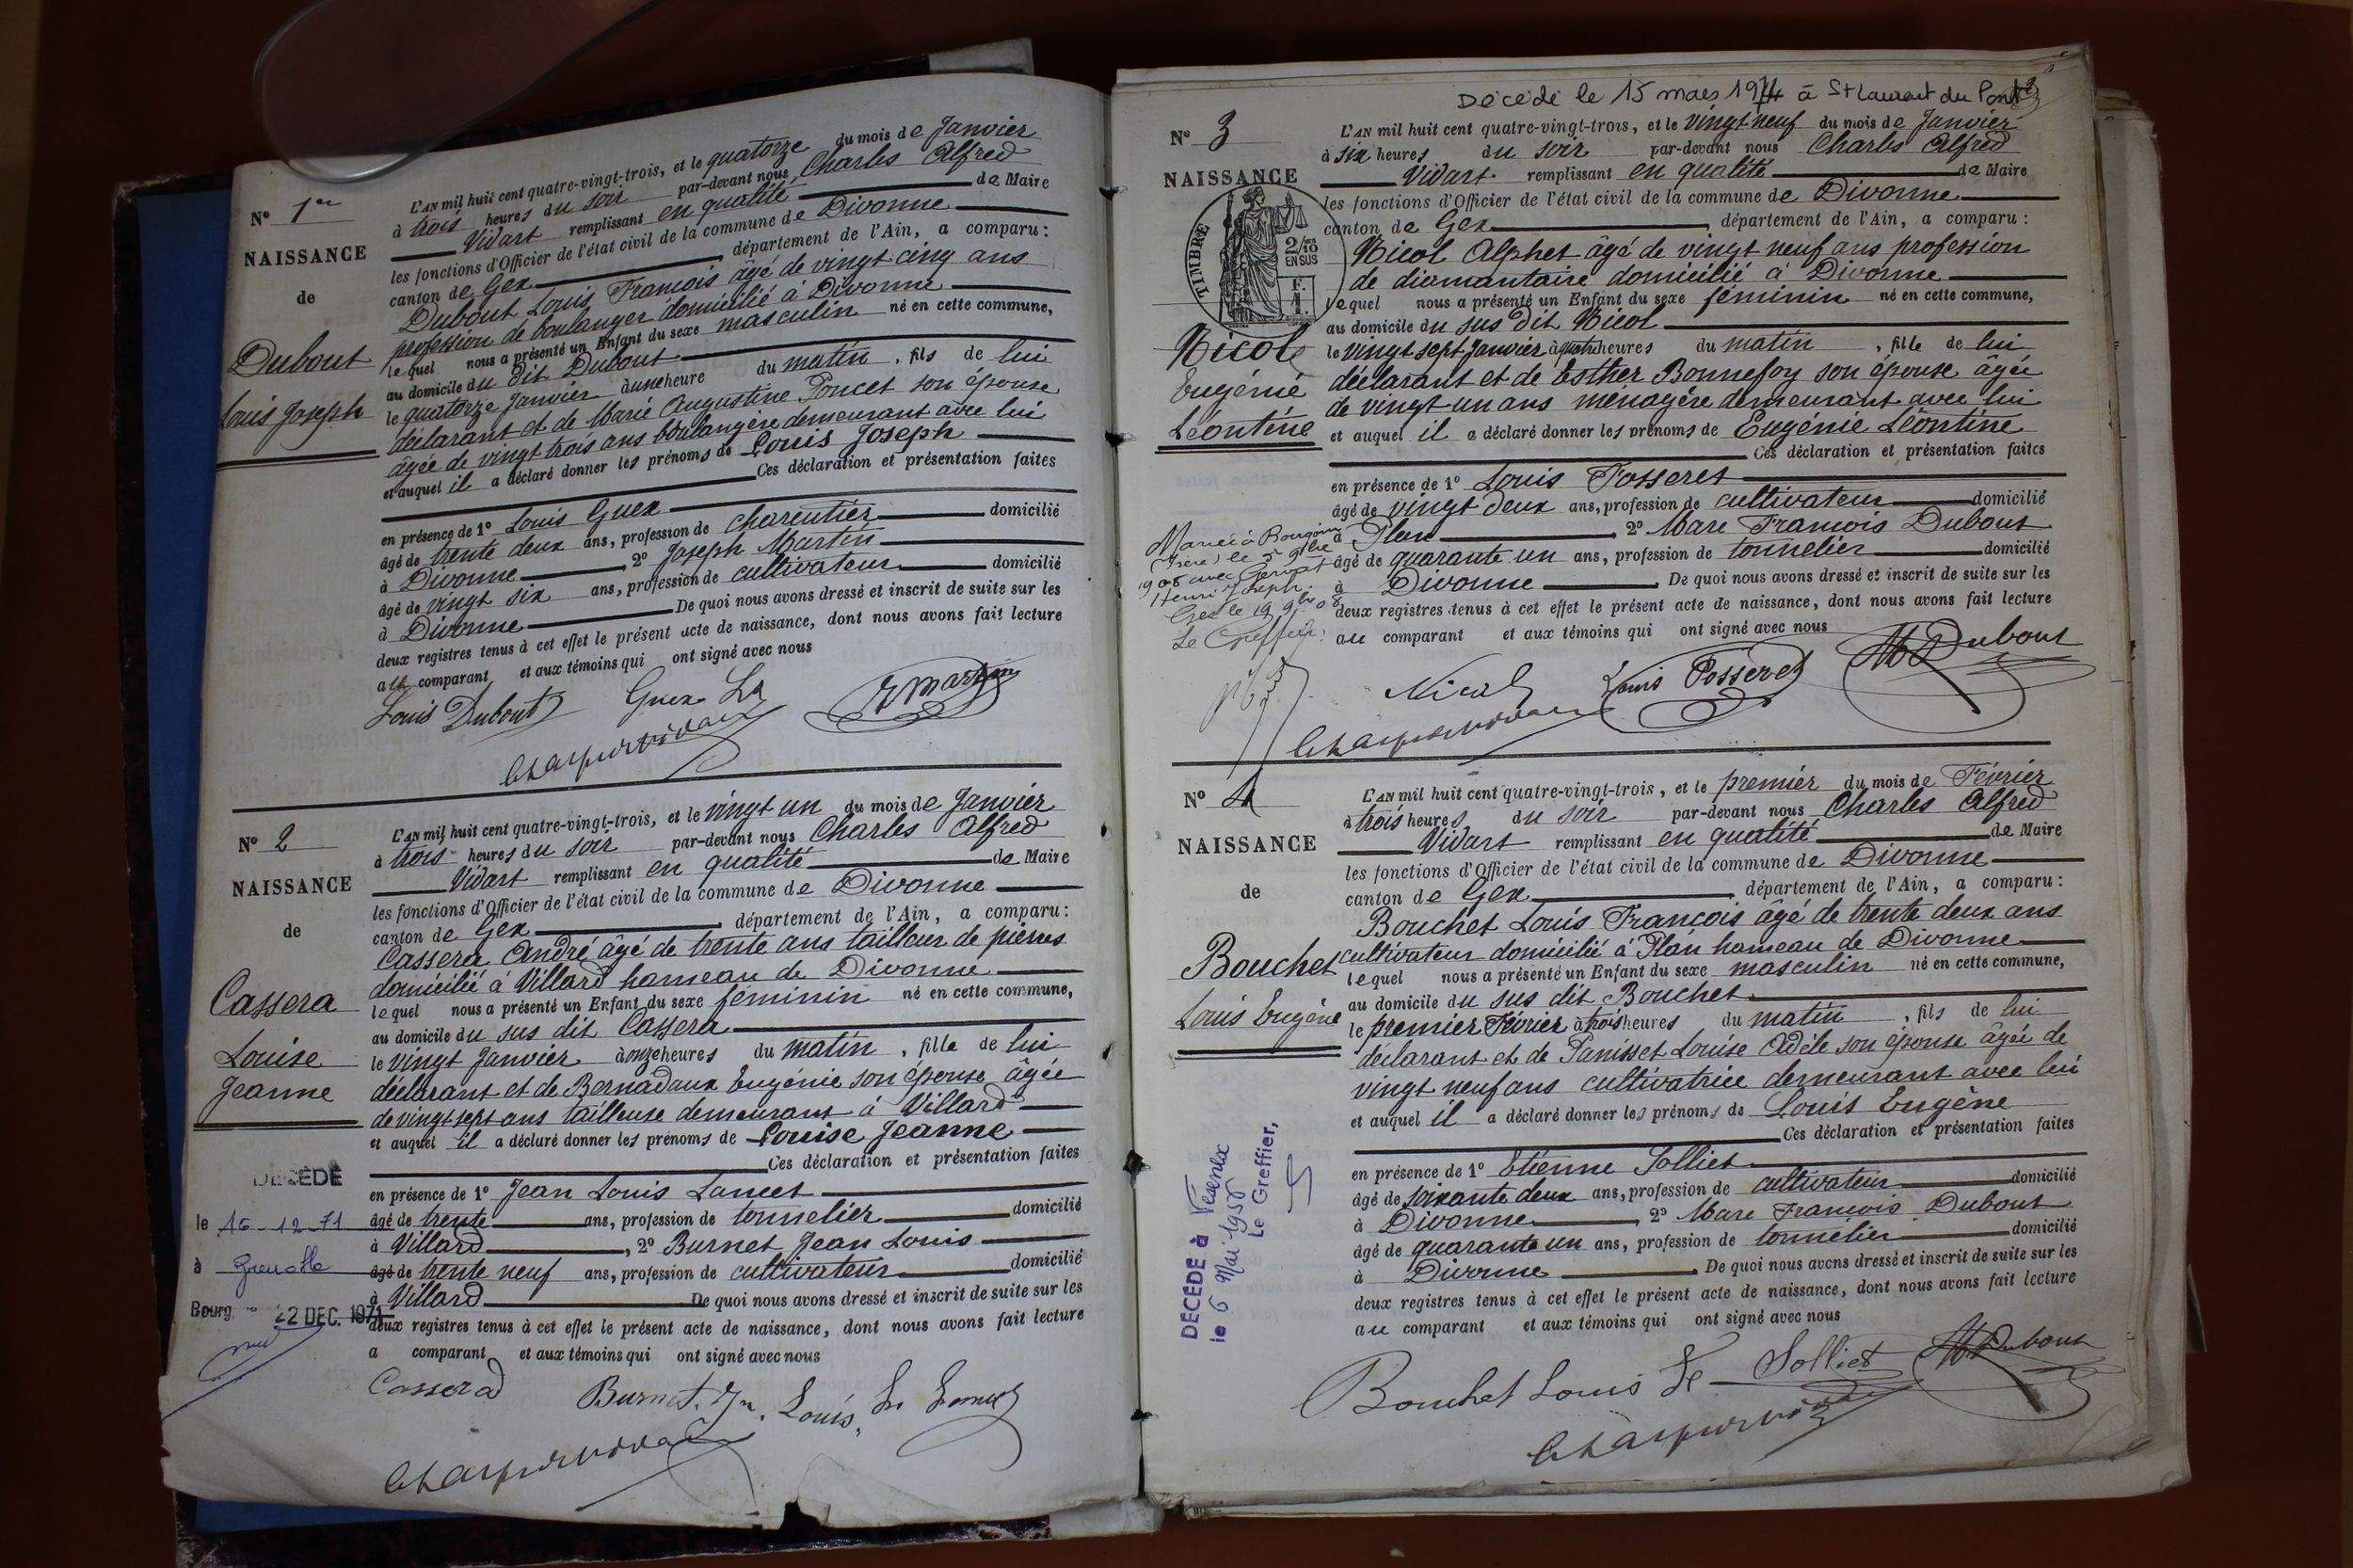 N° 1er
NAISSANCE
de
Dubout
Louis Joseph
L'AN mil huit cent quatre-vingt-trois, et le quatorze du mois de Janvier
à trois heures du soir par-devant nous Charles Alfred
Vidart remplissant en qualité de Maire
les fonctions d'Officier de l'état civil de la commune de Divonne
canton de Gex, département de l'Ain, a comparu :
Dubout Louis François âgé de vingt cinq ans
profession de boulanger domicilié à Divonne
lequel nous a présenté un Enfant du sexe masculin né en cette commune,
au domicile du dit Dubout
le quatorze Janvier à une heure du matin, fils de lui
déclarant et de Marie Augustine Poncet son épouse
âgée de vingt trois ans boulangère demeurant avec lui
et auquel il a déclaré donner les prénoms de Louis Joseph
Ces déclaration et présentation faites
en présence de 1° Louis Guex
âgé de trente deux ans, profession de charentier domicilié
à Divonne, 2° Joseph Martin
âgé de vingt six ans, profession de cultivateur domicilié
à Divonne De quoi nous avons dressé et inscrit de suite sur les
deux registres tenus à cet effet le présent acte de naissance, dont nous avons fait lecture
au comparant et aux témoins qui ont signé avec nous
Louis Dubout Guex Ls Martin
N° 2
NAISSANCE
de
Cassera
Louise
Jeanne
DÉCÉDÉ
le 16-12-71
à Grenoble
Bourg 22 DEC. 1971
L'AN mil huit cent quatre-vingt-trois, et le vingt un du mois de Janvier
à trois heures du soir par-devant nous Charles Alfred
Vidart remplissant en qualité de Maire
les fonctions d'Officier de l'état civil de la commune de Divonne
canton de Gex, département de l'Ain, a comparu :
Cassera André âgé de trente ans tailleur de pierres
domicilié à Villard hameau de Divonne
lequel nous a présenté un Enfant du sexe féminin né en cette commune,
au domicile du sus dit Cassera
le vingt Janvier à onze heures du matin, fille de lui
déclarant et de Bernadaux Eugénie son épouse âgée
de vingt sept ans tailleuse demeurant à Villard
et auquel il a déclaré donner les prénoms de Louise Jeanne
Ces déclaration et présentation faites
en présence de 1° Jean Louis Lancet
âgé de trente ans, profession de tonnelier domicilié
à Villard, 2° Burnet Jean Louis
âgé de trente neuf ans, profession de cultivateur domicilié
à Villard De quoi nous avons dressé et inscrit de suite sur les
deux registres tenus à cet effet le présent acte de naissance, dont nous avons fait lecture
a comparant et aux témoins qui ont signé avec nous
Cassera Burnet Jn Louis
Décédé le 15 mars 1974 à St Laurent du Pont
N° 3
NAISSANCE
TIMBRE
2/10 EN SUS
F. 1.
Nicol
Eugénie
Léontine
Marié à Bourgoin
(Isère) le 5 9bre
1908 avec Gervat
Henri Joseph.
Gex le 19 9bre 08
Le Greffier :
L'AN mil huit cent quatre-vingt-trois, et le vingt neuf du mois de Janvier
à six heures du soir par-devant nous Charles Alfred
Vidart remplissant en qualité de Maire
les fonctions d'Officier de l'état civil de la commune de Divonne
canton de Gex, département de l'Ain, a comparu :
Nicol Alphet âgé de vingt neuf ans profession
de diamantaire domicilié à Divonne
lequel nous a présenté un Enfant du sexe féminin né en cette commune,
au domicile du sus dit Nicol
le vingt sept Janvier à quatre heures du matin, fille de lui
déclarant et de Esther Bonnefoy son épouse âgée
de vingt un ans ménagère demeurant avec lui
et auquel il a déclaré donner les prénoms de Eugénie Léontine
Ces déclaration et présentation faites
en présence de 1° Louis Posseret
âgé de vingt deux ans, profession de cultivateur domicilié
à Plan, 2° Marc François Dubout
âgé de quarante un ans, profession de tonnelier domicilié
à Divonne De quoi nous avons dressé et inscrit de suite sur les
deux registres tenus à cet effet le présent acte de naissance, dont nous avons fait lecture
au comparant et aux témoins qui ont signé avec nous
Nicol Louis Posseret Dubout
N° 4
NAISSANCE
de
Bouchet
Louis Eugène
DÉCÉDÉ à
le 6 Mai 1958
Le Greffier,
L'AN mil huit cent quatre-vingt-trois, et le premier du mois de Février
à trois heures du soir par-devant nous Charles Alfred
Vidart remplissant en qualité de Maire
les fonctions d'Officier de l'état civil de la commune de Divonne
canton de Gex, département de l'Ain, a comparu :
Bouchet Louis François âgé de trente deux ans
cultivateur domicilié à Plan hameau de Divonne
lequel nous a présenté un Enfant du sexe masculin né en cette commune,
au domicile du sus dit Bouchet
le premier Février à trois heures du matin, fils de lui
déclarant et de Panisset Louise Adèle son épouse âgée de
vingt neuf ans cultivatrice demeurant avec lui
et auquel il a déclaré donner les prénoms de Louis Eugène
Ces déclaration et présentation faites
en présence de 1° Etienne Jolliet
âgé de soixante deux ans, profession de cultivateur domicilié
à Divonne, 2° Marc François Dubout
âgé de quarante un ans, profession de tonnelier domicilié
à Divonne De quoi nous avons dressé et inscrit de suite sur les
deux registres tenus à cet effet le présent acte de naissance, dont nous avons fait lecture
au comparant et aux témoins qui ont signé avec nous
Bouchet Louis Jolliet Dubout